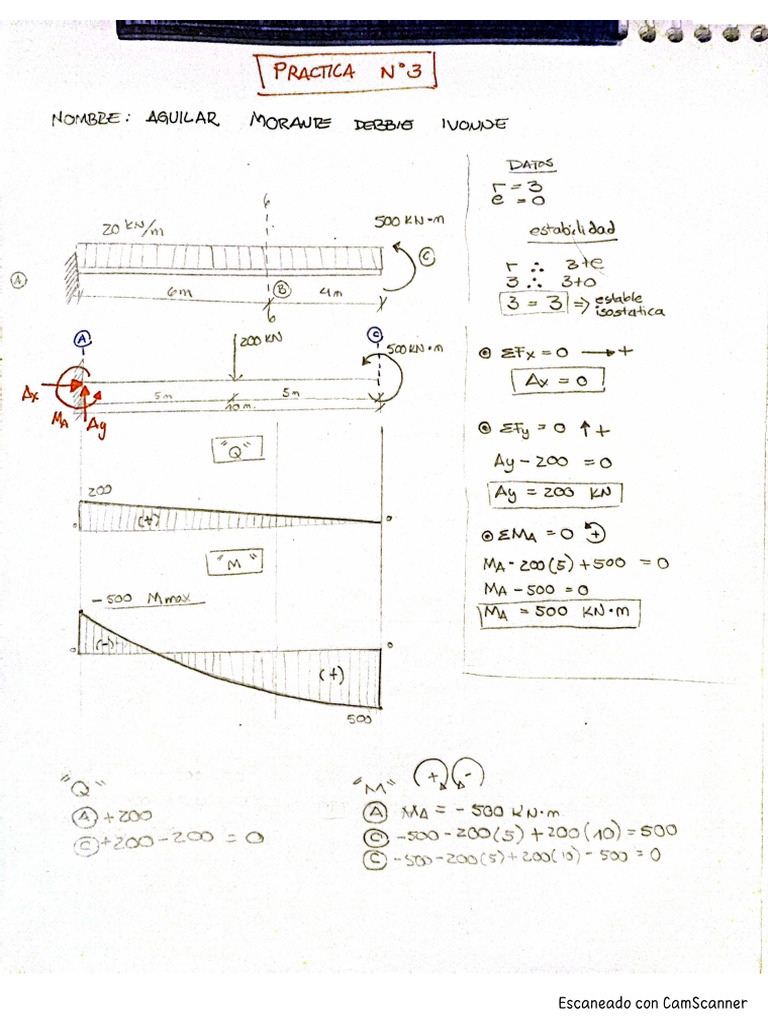 PRACTICA N°3
NOMBRE: AGUILAR MORANTE DEBBIE IVONNE
DATOS
r = 3
e = 0
estabilidad
r ∴ 3+e
3 ∴ 3+0
3 = 3 ⇒ estable
isostatica
6
20 KN/m
500 KN·m
C
A
6m
B
4m
6
A
200 KN
C
500 KN·m
Ax
5m
5m
10m.
MA
Ay
ΣFx = 0 → +
Ax = 0
ΣFy = 0 ↑ +
Ay - 200 = 0
Ay = 200 KN
ΣMA = 0 +
MA - 200(5) + 500 = 0
MA - 500 = 0
MA = 500 KN·m
"Q"
200
(+)
0
0
"M"
- 500 Mmax
(-)
0
0
(+)
500
"Q"
A +200
C +200 - 200 = 0
"M" + -
A MA = - 500 KN·m
C -500 - 200(5) + 200(10) = 500
C -500 - 200(5) + 200(10) - 500 = 0
Escaneado con CamScanner